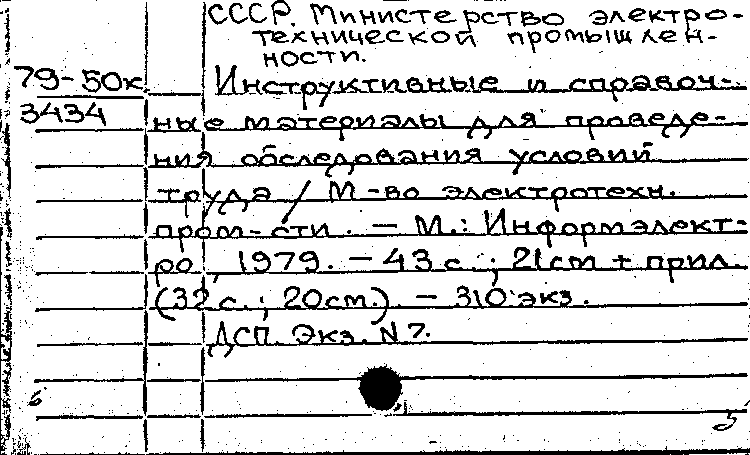 СССР. Министерство электро-
технической промышлен-
ности.
79-50к
3434
Инструктивные и справоч-
ные материалы для проведе-
ния обследования условий
труда / М-во электротехн.
пром-сти. — М.: Информэлект-
ро, 1979. — 43 с.; 21cm + прил.
(32 с.; 20cm.). — 310 экз.
ДСП. Экз. N 7.
6
5